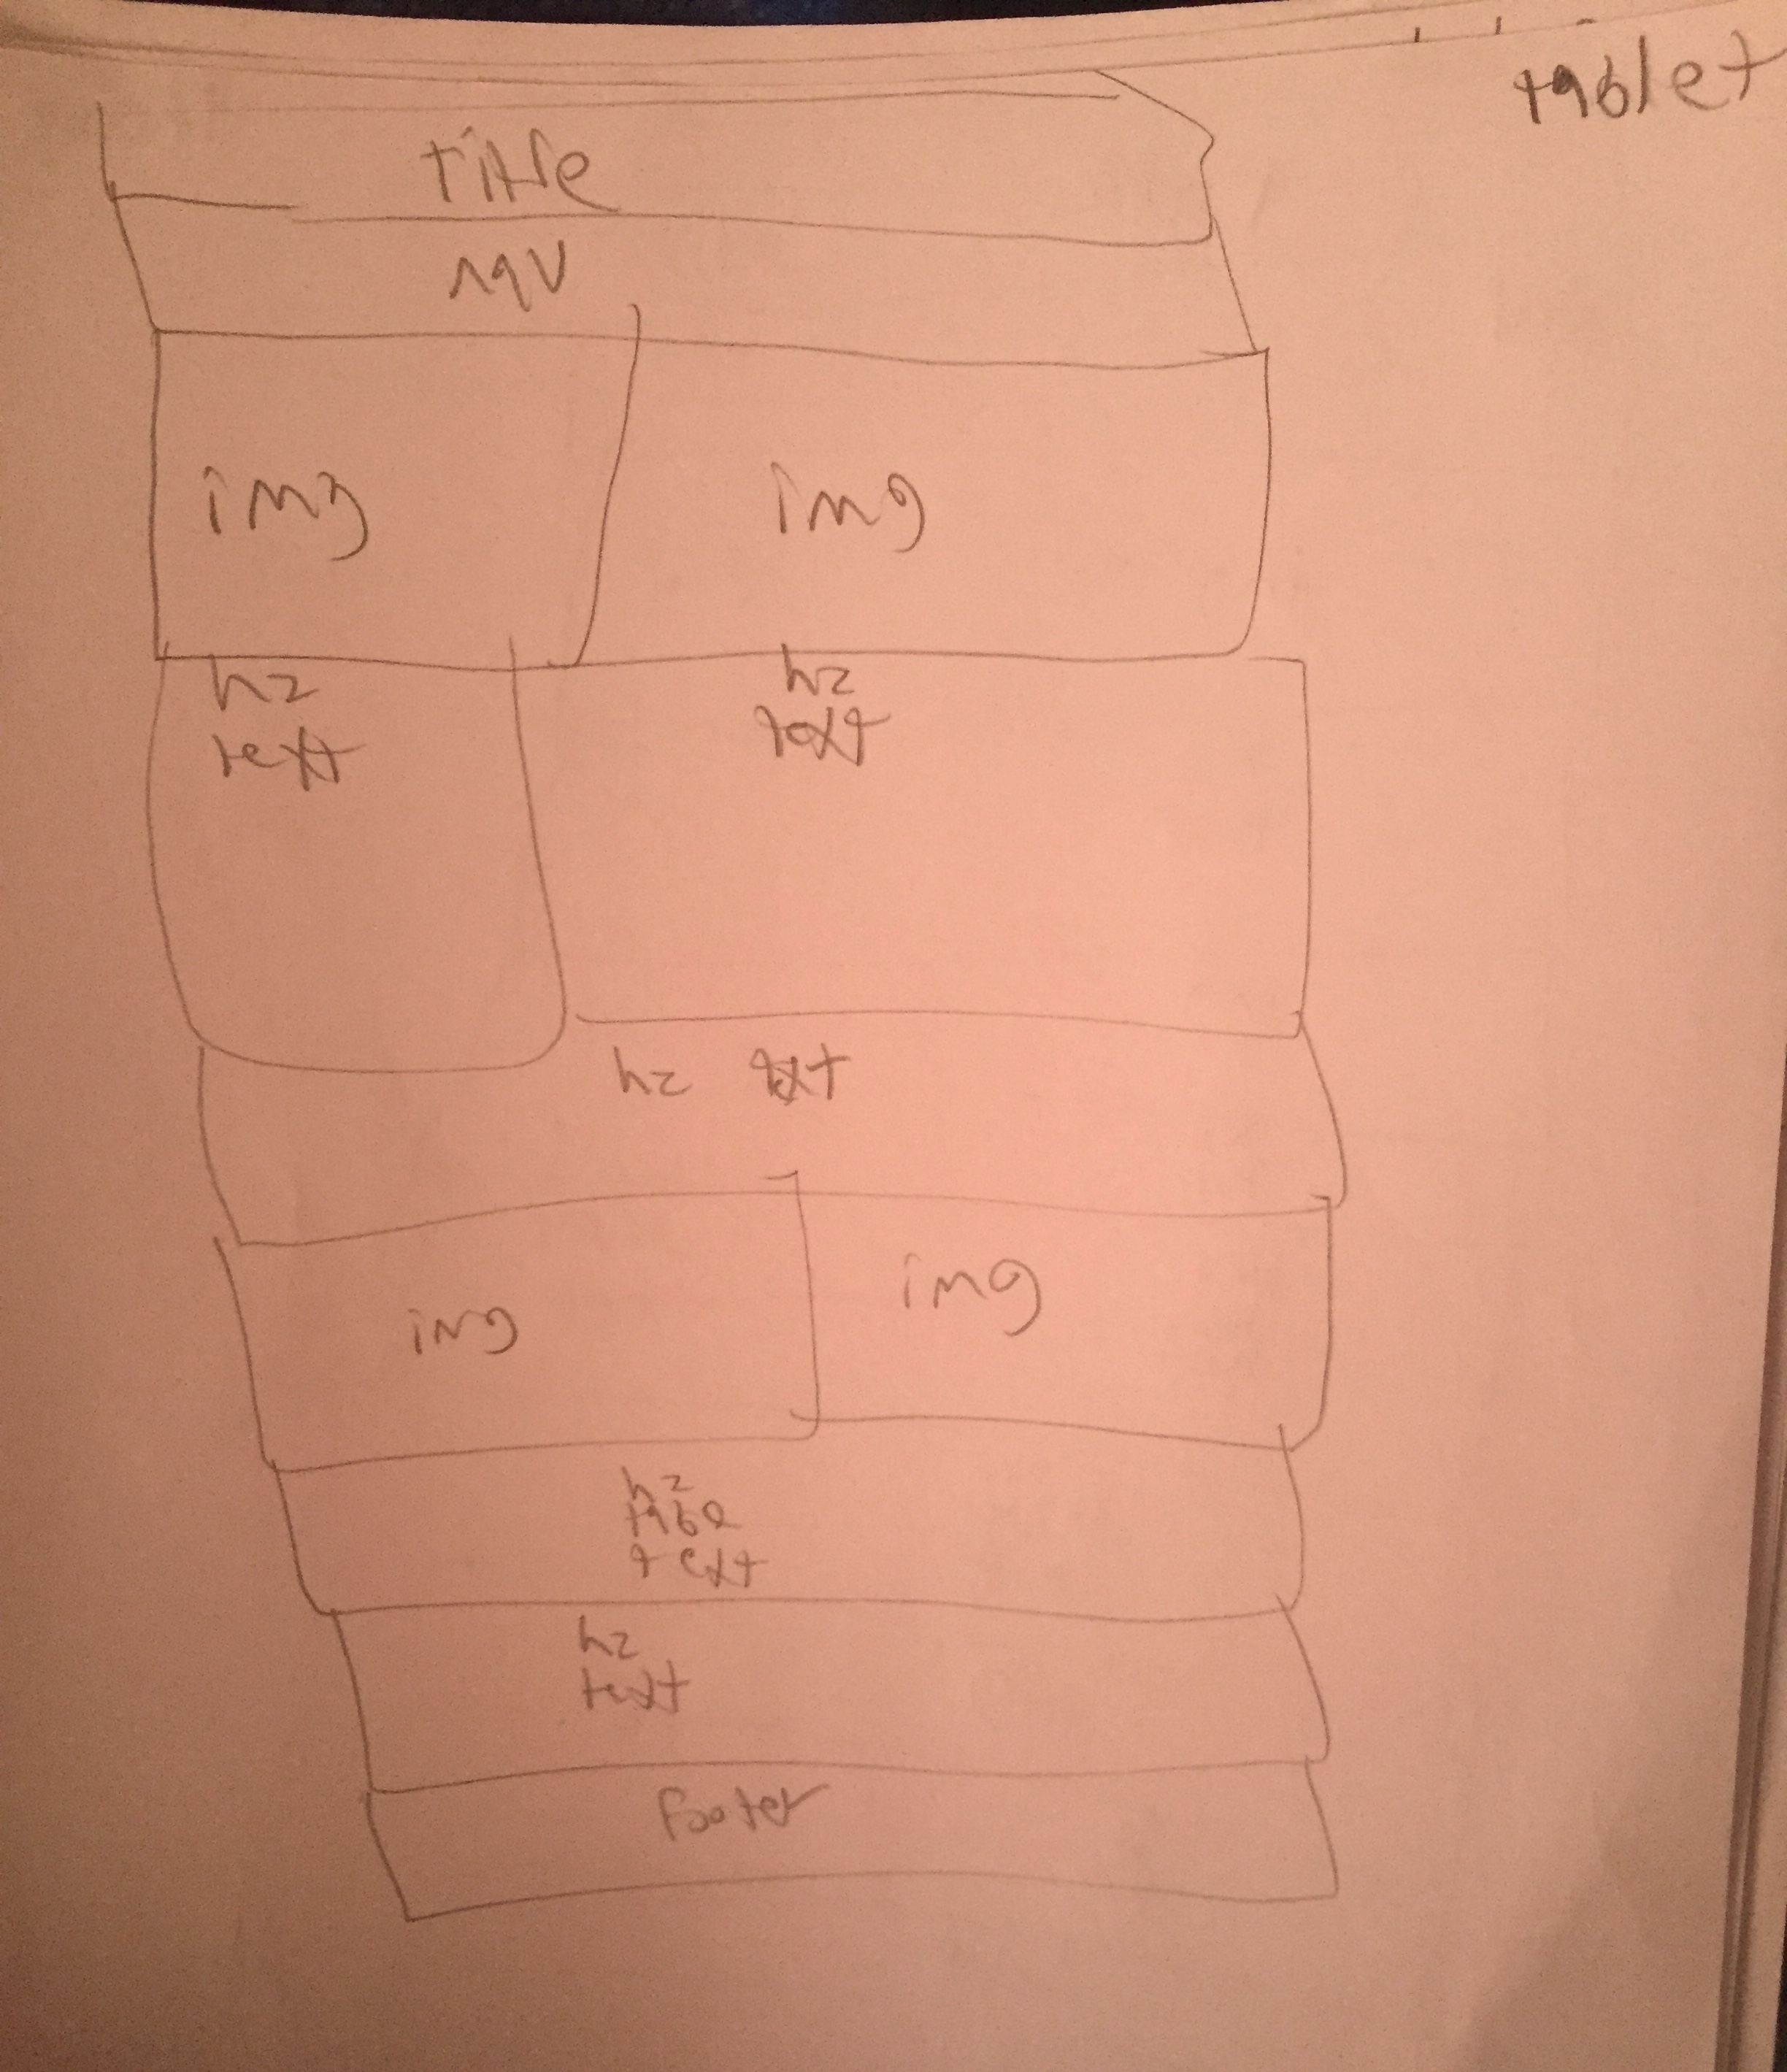 tablet
title
nav
img img
h2 h2
text text
h2 text
img img
h2
table
text
h2
text
footer